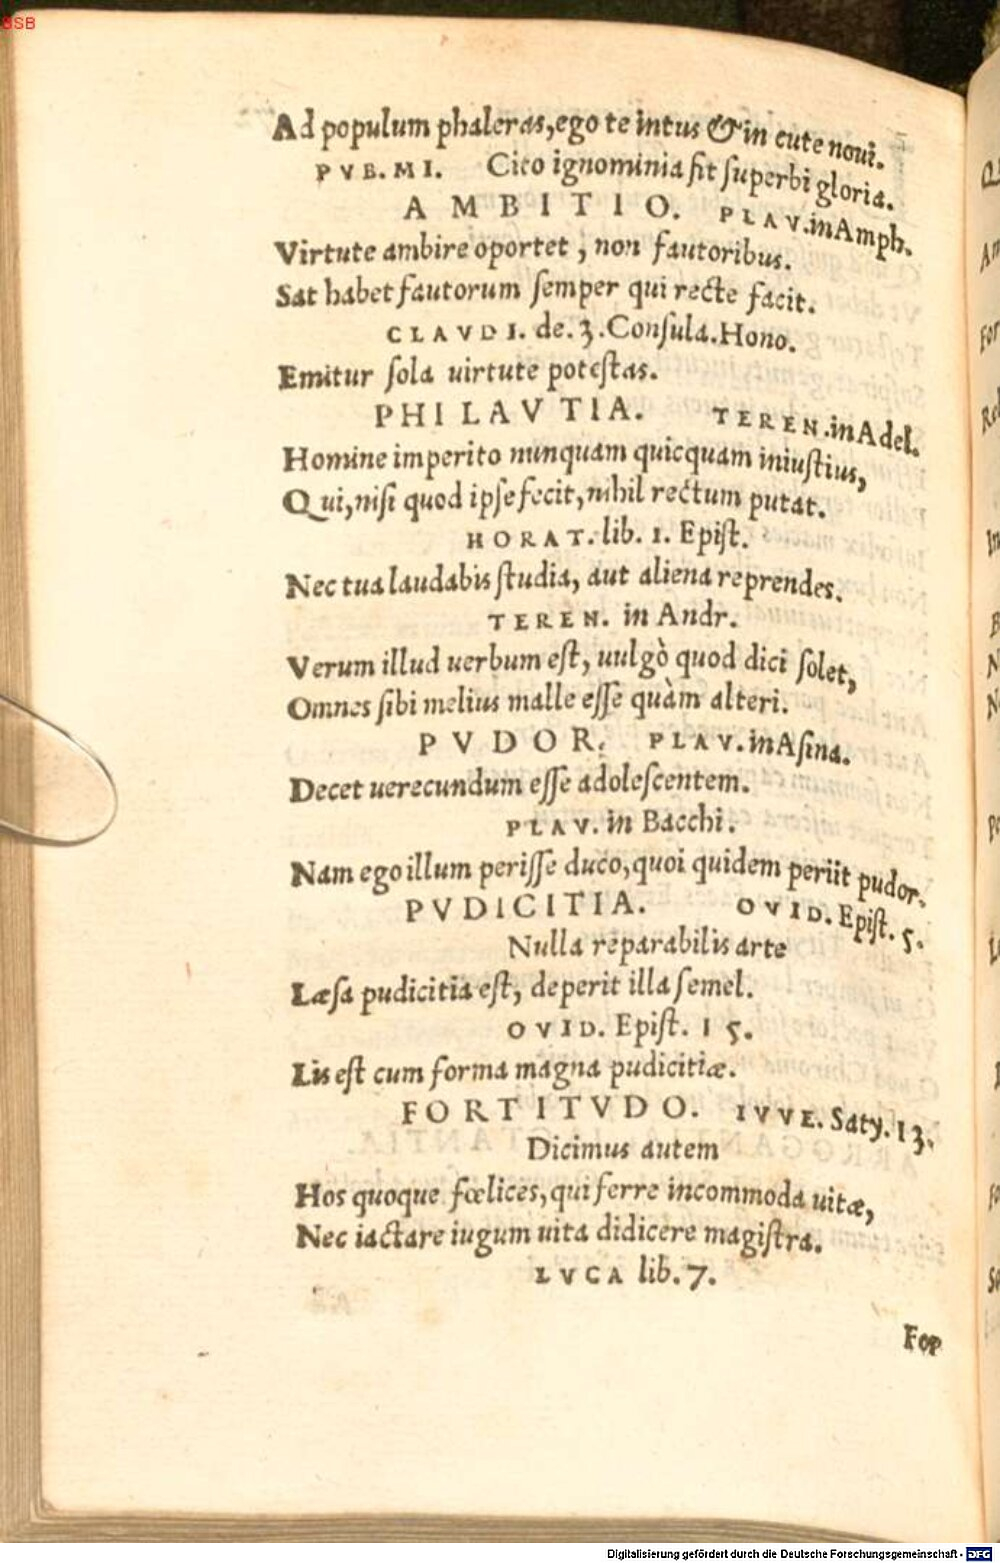 BSB
Ad populum phaleras, ego te intus & in cute noui.
PVB. MI. Cito ignominia fit superbi gloria.
AMBITIO. PLAV. in Amph.
Virtute ambire oportet, non fautoribus.
Sat habet fautorum semper qui recte facit.
CLAVDI. de. 3. Consula. Hono.
Emitur sola uirtute potestas.
PHILAVTIA. TEREN. in Adel.
Homine imperito nunquam quicquam iniustius,
Qui, nisi quod ipse fecit, nihil rectum putat.
HORAT. lib. 1. Epist.
Nec tua laudabis studia, aut aliena reprendes.
TEREN. in Andr.
Verum illud uerbum est, uulgò quod dici solet,
Omnes sibi melius malle esse quàm alteri.
PVDOR. PLAV. in Asina.
Decet uerecundum esse adolescentem.
PLAV. in Bacchi.
Nam ego illum perisse duco, quoi quidem periit pudor.
PVDICITIA. OVID. Epist. 5.
Nulla reparabilis arte
Læsa pudicitia est, deperit illa semel.
OVID. Epist. 15.
Lis est cum forma magna pudicitiæ.
FORTITVDO. IVVE. Saty. 13.
Dicimus autem
Hos quoque fœlices, qui ferre incommoda uitæ,
Nec iactare iugum uita didicere magistra.
LVCA lib. 7.
For
Digitalisierung gefördert durch die Deutsche Forschungsgemeinschaft - DFG